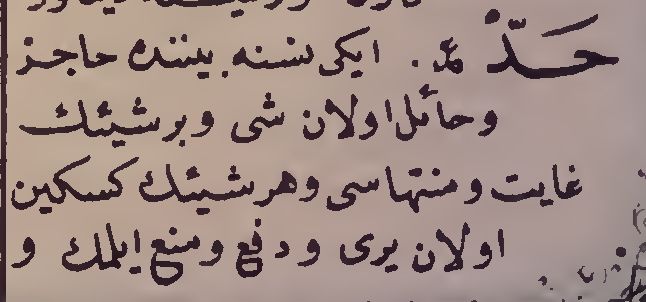 حَدّْ عر. ایکی نسنه بیننده حاجز
و حائل اولان شی و بر شیئك
غایت و منتهاسی و هر شیئك کسکین
اولان یری و دفع و منع ایلمك و